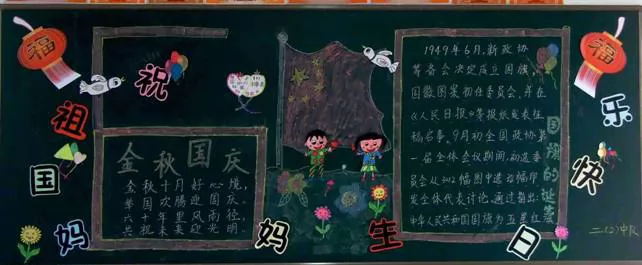 福
祝
祖
国
妈
妈
生
日
快
乐
福
金秋国庆
金秋十月好心境，
举国欢腾迎国庆。
六十年里风雨径，
共祝未来更光明。
1949年6月，新政协
筹备会决定成立国旗、
国徽图案初任委员会，并在
《人民日报》等报纸发表征
稿启事。9月初全国政协第
一届全体会议期间，初选委
员会从3012幅图中选幅印
发全体代表讨论，通过指出：
中华人民共和国国旗为五星红
国旗的诞生
二.(2)中队